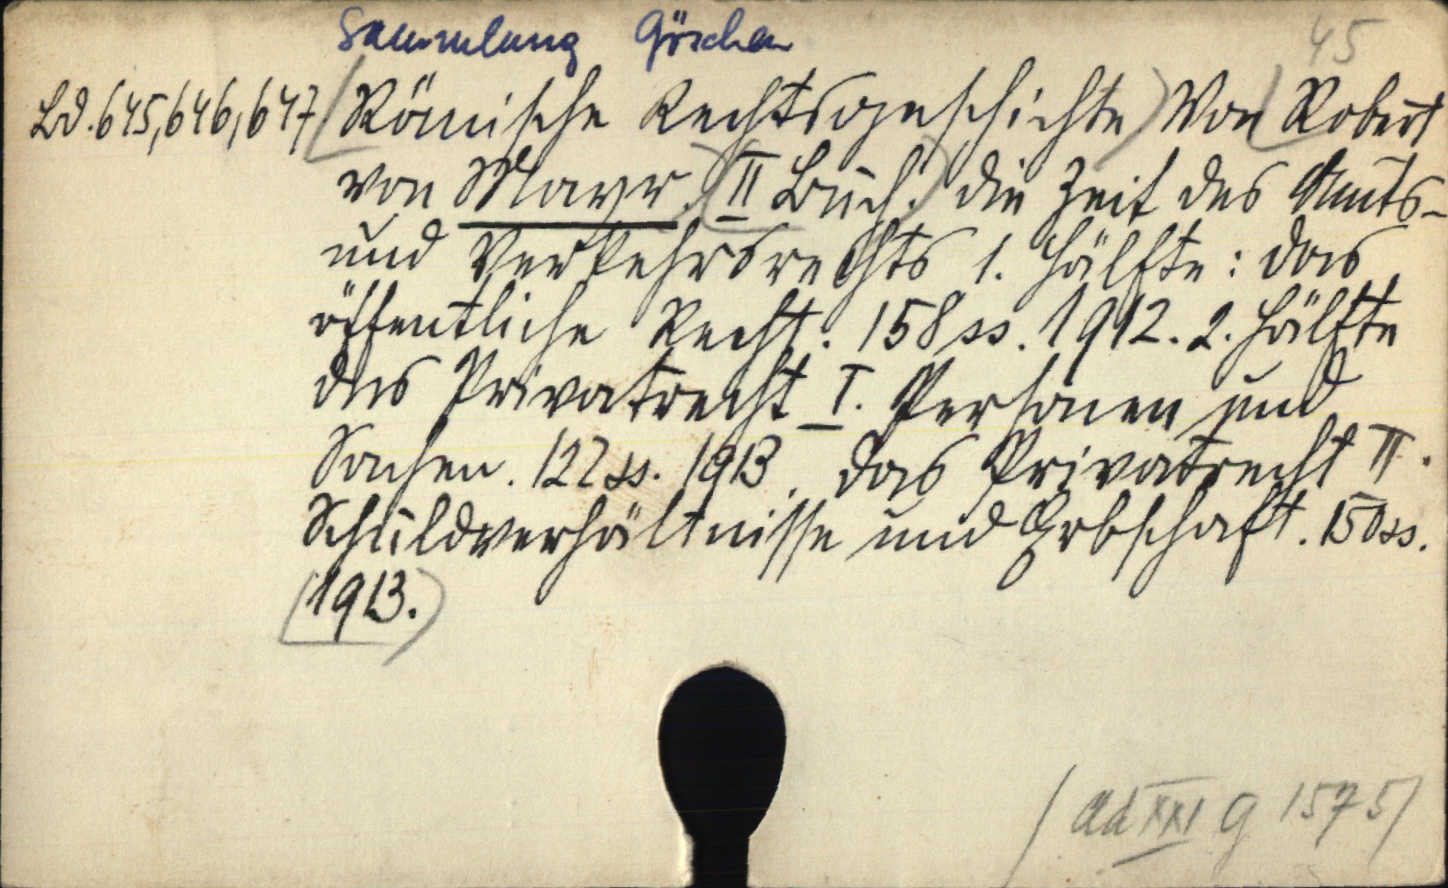 Sammlung Göschen
45
Bd. 645, 646, 647 (Römische Rechtsgeschichte) Von (Robert
von Mayr.) (II Buch.) die Zeit des Amts-
und Verkehrsrechts 1. Hälfte: das
öffentliche Recht. 158 ss. 1912. 2. Hälfte
das Privatrecht I. Personen und
Sachen. 122 ss. 1913. das Privatrecht II.
Schuldverhältnisse und Erbschaft. 150 ss.
(1913.)
(ad XXI G 1575)